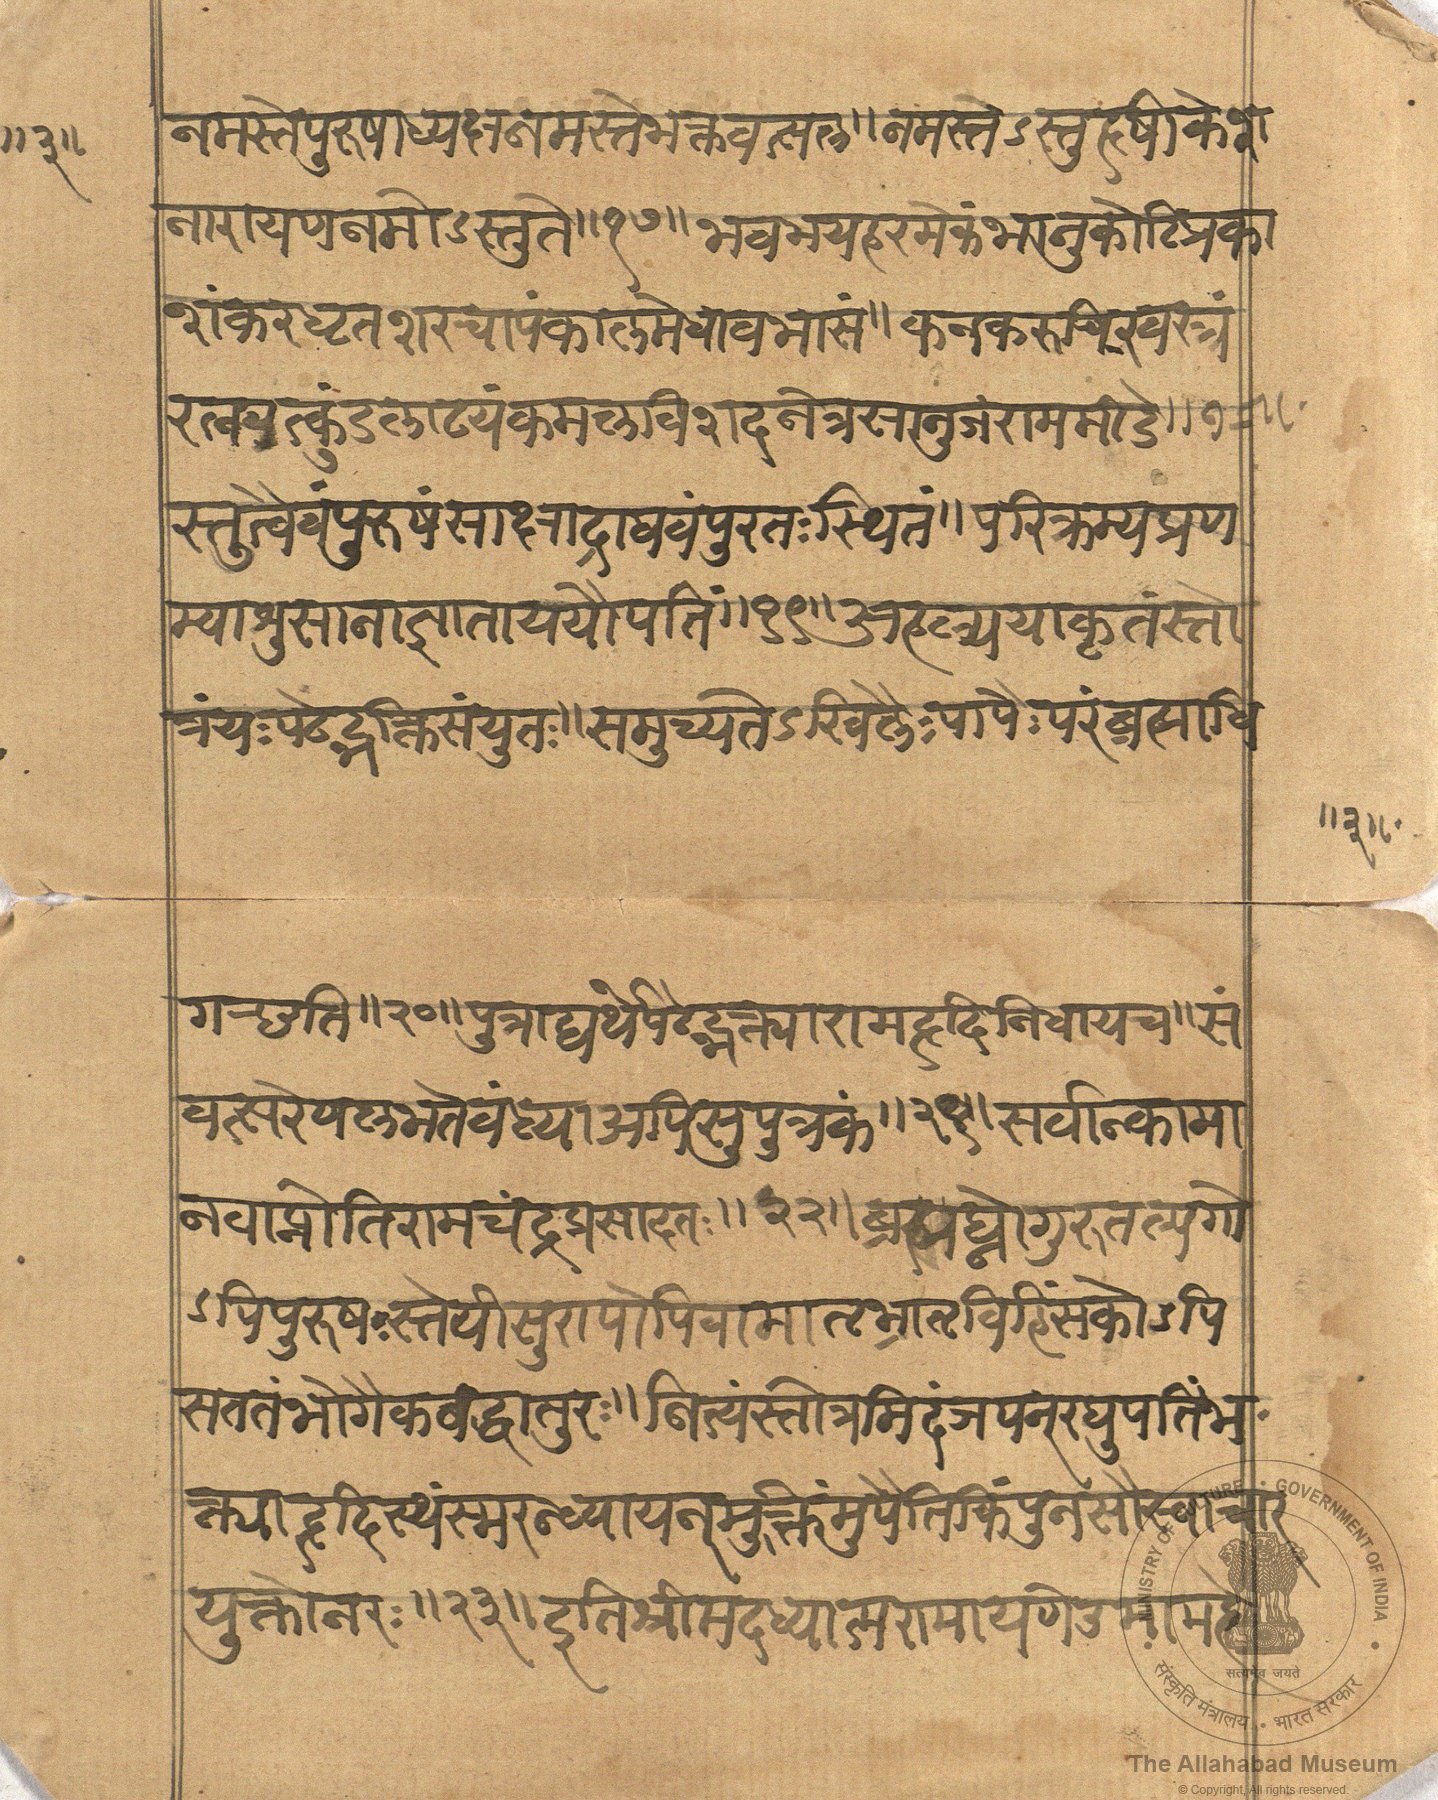 नमस्तेपुरुषाध्यक्षनमस्तेभक्तवत्सल॥नमस्तेऽस्तुहृषीकेश
॥३॥
नारायणनमोऽस्तुते॥१७॥भवभयहरमेकंभानुकोटिप्रका
शंकरधृतशरचापंकालमेघावभासं॥कनकरुचिरवस्त्रं
रत्नवत्कुंडलाढ्यंकमलविशदनेत्रंसानुजंराममीडे॥१८॥
स्तुत्वैवंपुरुषंसाक्षाद्राघवंपुरतःस्थितं॥परिक्रम्यप्रण
म्याशुसानाज्ञातायययौपतिं॥१९॥अहल्ययाकृतंस्तो
त्रंयःपठेद्भक्तिसंयुतः॥समुच्यतेऽखिलैःपापैःपरंब्रह्माधि
॥३॥
गच्छति॥२०॥पुत्राद्यर्थेपठेद्भक्त्यारामहृदिनिधायच॥सं
वत्सरेणलभतेवंध्याअपिसुपुत्रकं॥२१॥सर्वान्कामा
नवाप्नोतिरामचंद्रप्रसादतः॥२२॥ब्रह्मघ्नोगुरुतल्पगो
ऽपिपुरुषःस्तेयीसुरापोपिवामातृभ्रातृविहिंसकोऽपि
सततंभोगैकबद्धातुरः॥नित्यंस्तोत्रमिदंजपन्रघुपतिंभ
क्त्याहृदिस्थंस्मरन्ध्यायन्मुक्तिंमुपैतिकिंपुनसौस्वाचार
युक्तोनरः॥२३॥इतिश्रीमदध्यात्मरामायणेउमामहे
MINISTRY OF CULTURE • GOVERNMENT OF INDIA
सत्यमेव जयते
संस्कृति मंत्रालय • भारत सरकार
The Allahabad Museum
© Copyright, All rights reserved.